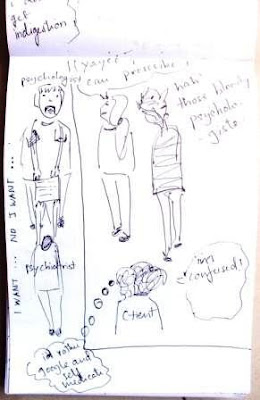 get
indigestion!
!! yayee!!
can prescribe!
psychologist
hah!
those bloody
psycholo-
gists.
I WANT ... NO I WANT ...
psychiatrist
im
confused!
Client
i'd rather
google and
self
medicate